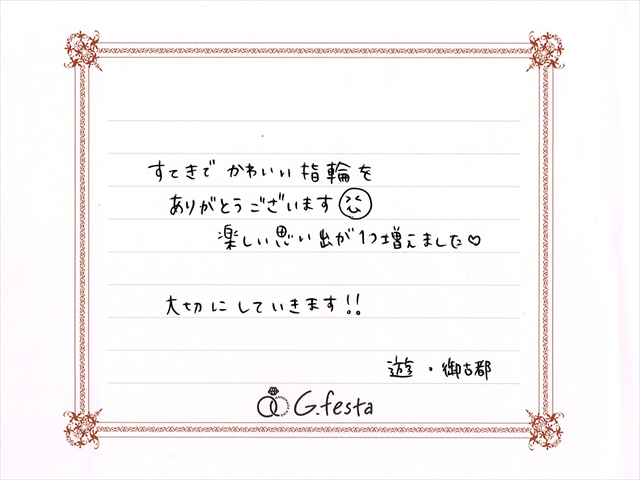 すてきで かわいい 指輪を
ありがとうございます
楽しい思い出が1つ増えました♡
大切にしていきます!!
遊・御古都
G.festa